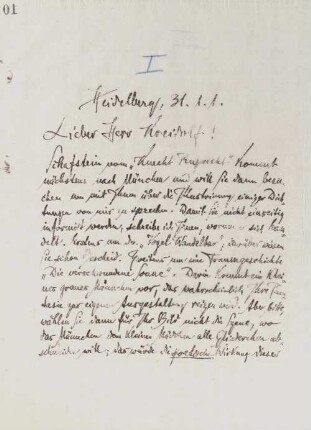 01
I
Heidelberg, 31.1.1.
Lieber Herr Kreidolf!
Schafstein vom „Knecht Ruprecht" kommt
nächstens nach München und will Sie dann besu-
chen um mit Ihnen über die Illustrirung einiger Dich-
tungen von mir zu sprechen. Damit Sie nicht einseitig
informirt werden, schreibe ich Ihnen, worum es sich han-
delt. Erstens um den „Vogel Wandelbar", darüber wissen
Sie schon Bescheid. Zweitens um eine Traumgeschichte
„Die verschwundene Sonne". Darin kommt ein klei-
nes graues Männchen vor, das wahrscheinlich Ihre Fan-
tasie zur eigenen Ausgestaltung reizen wird. Aber bitte,
wählen Sie dann für Ihr Bild nicht die Szene, wo
das Männchen dem kleinen Mädchen alle Gliederchen ab-
schneiden will; das würde die poetische Wirkung dieser